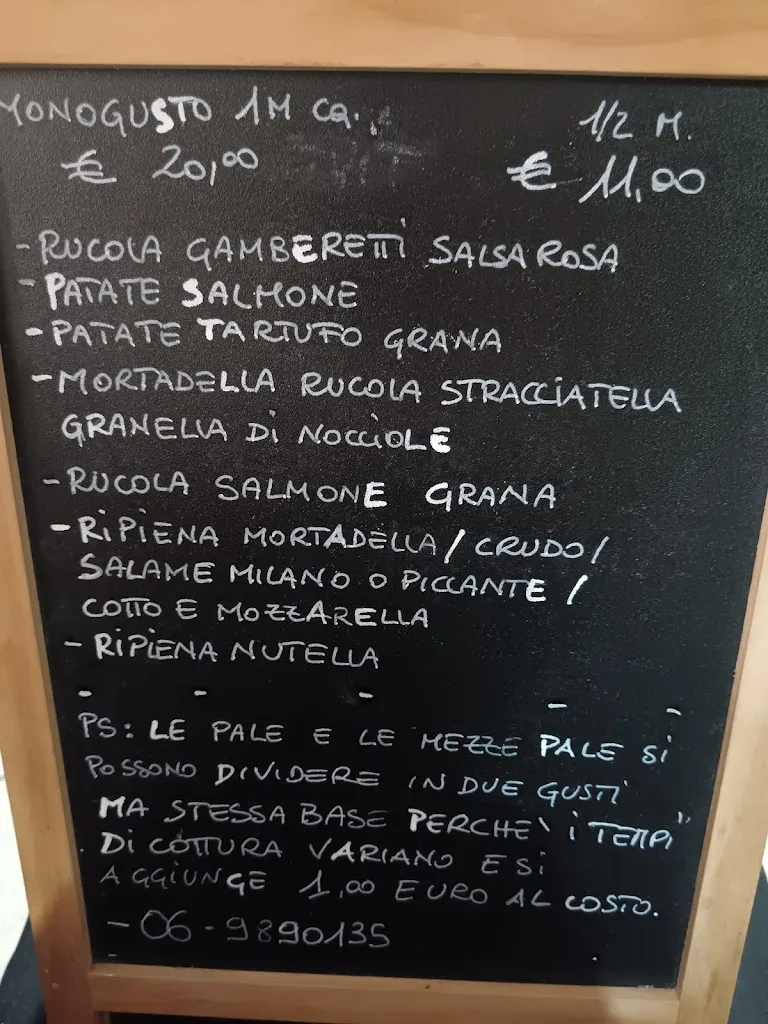 MONOGUSTO 1M CQ.
1/2 M.
€ 20,00
€ 11,00
- RUCOLA GAMBERETTI SALSA ROSA
- PATATE SALMONE
- PATATE TARTUFO GRANA
- MORTADELLA RUCOLA STRACCIATELLA
GRANELLA Di NOCCiOLE
- RUCOLA SALMONE GRANA
- RiPiENA MORTADELLA / CRUDO /
SALAME MILANO O PICCANTE /
COTTO E MOZZARELLA
- RIPIENA NUTELLA
- - - - -
PS: LE PALE E LE MEZZE PALE Si
POSSONO DIVIDERE IN DUE GUSTi
MA STESSA BASE PERCHE` i "TEMPi"
Di COTTURA VARIANO E Si
AGGIUNGE 1,00 EURO AL COSTO.
- 06 - 9890135